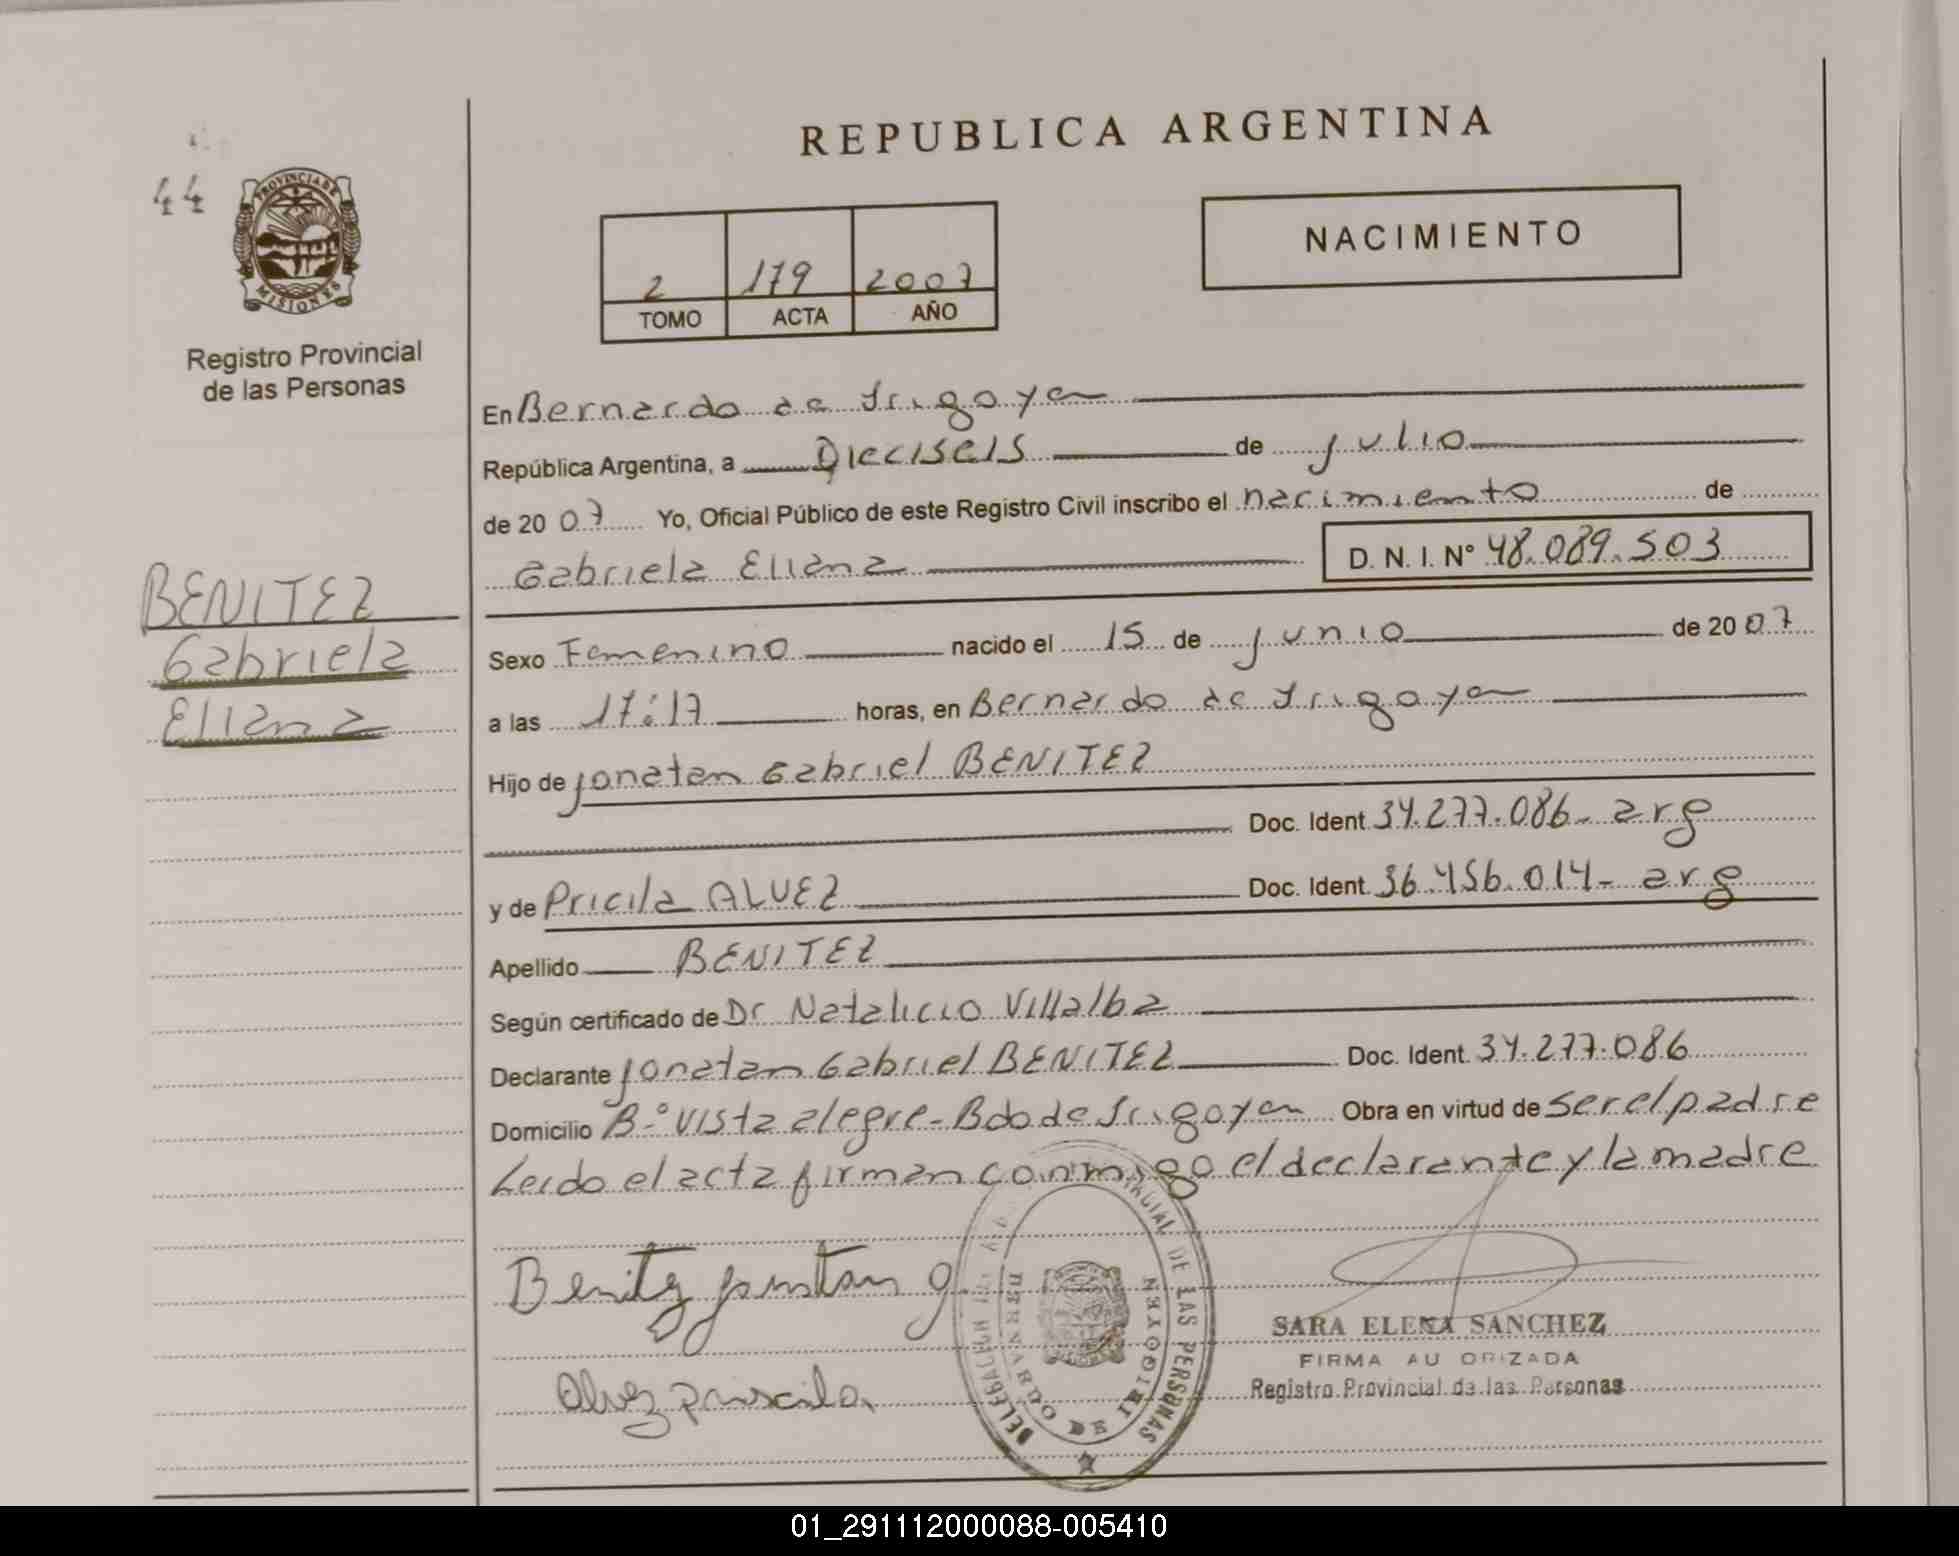 REPUBLICA ARGENTINA
44
PROVINCIA DE
MISIONES
Registro Provincial
de las Personas
NACIMIENTO
2 179 2007
TOMO ACTA AÑO
En Bernardo de Irigoyen
República Argentina, a Dieciseis de julio
de 20 07 Yo, Oficial Público de este Registro Civil inscribo el nacimiento de
Gabriela Eliana D. N. I. N° 48.089.503
BENITEZ
Gabriela
Eliana
Sexo Femenino nacido el 15 de junio de 20 07
a las 17:17 horas, en Bernardo de Irigoyen
Hijo de Jonatan Gabriel BENITEZ
Doc. Ident. 34.277.086- arg
y de Pricila ALVEZ Doc. Ident. 36.456.014- arg
Apellido BENITEZ
Según certificado de Dr Natalicio Villalba
Declarante Jonatan Gabriel BENITEZ Doc. Ident. 34.277.086
Domicilio B° Vista alegre- Bdo de Irigoyen Obra en virtud de ser el padre
Leido el acta firman conmigo el declarante y la madre
Benitez Jonatan g.
Alvez priscila
DE LAS PERSONAS
BERNARDO DE IRIGOYEN
SARA ELENA SANCHEZ
FIRMA AU ORIZADA
Registro Provincial de las Personas
01_291112000088-005410